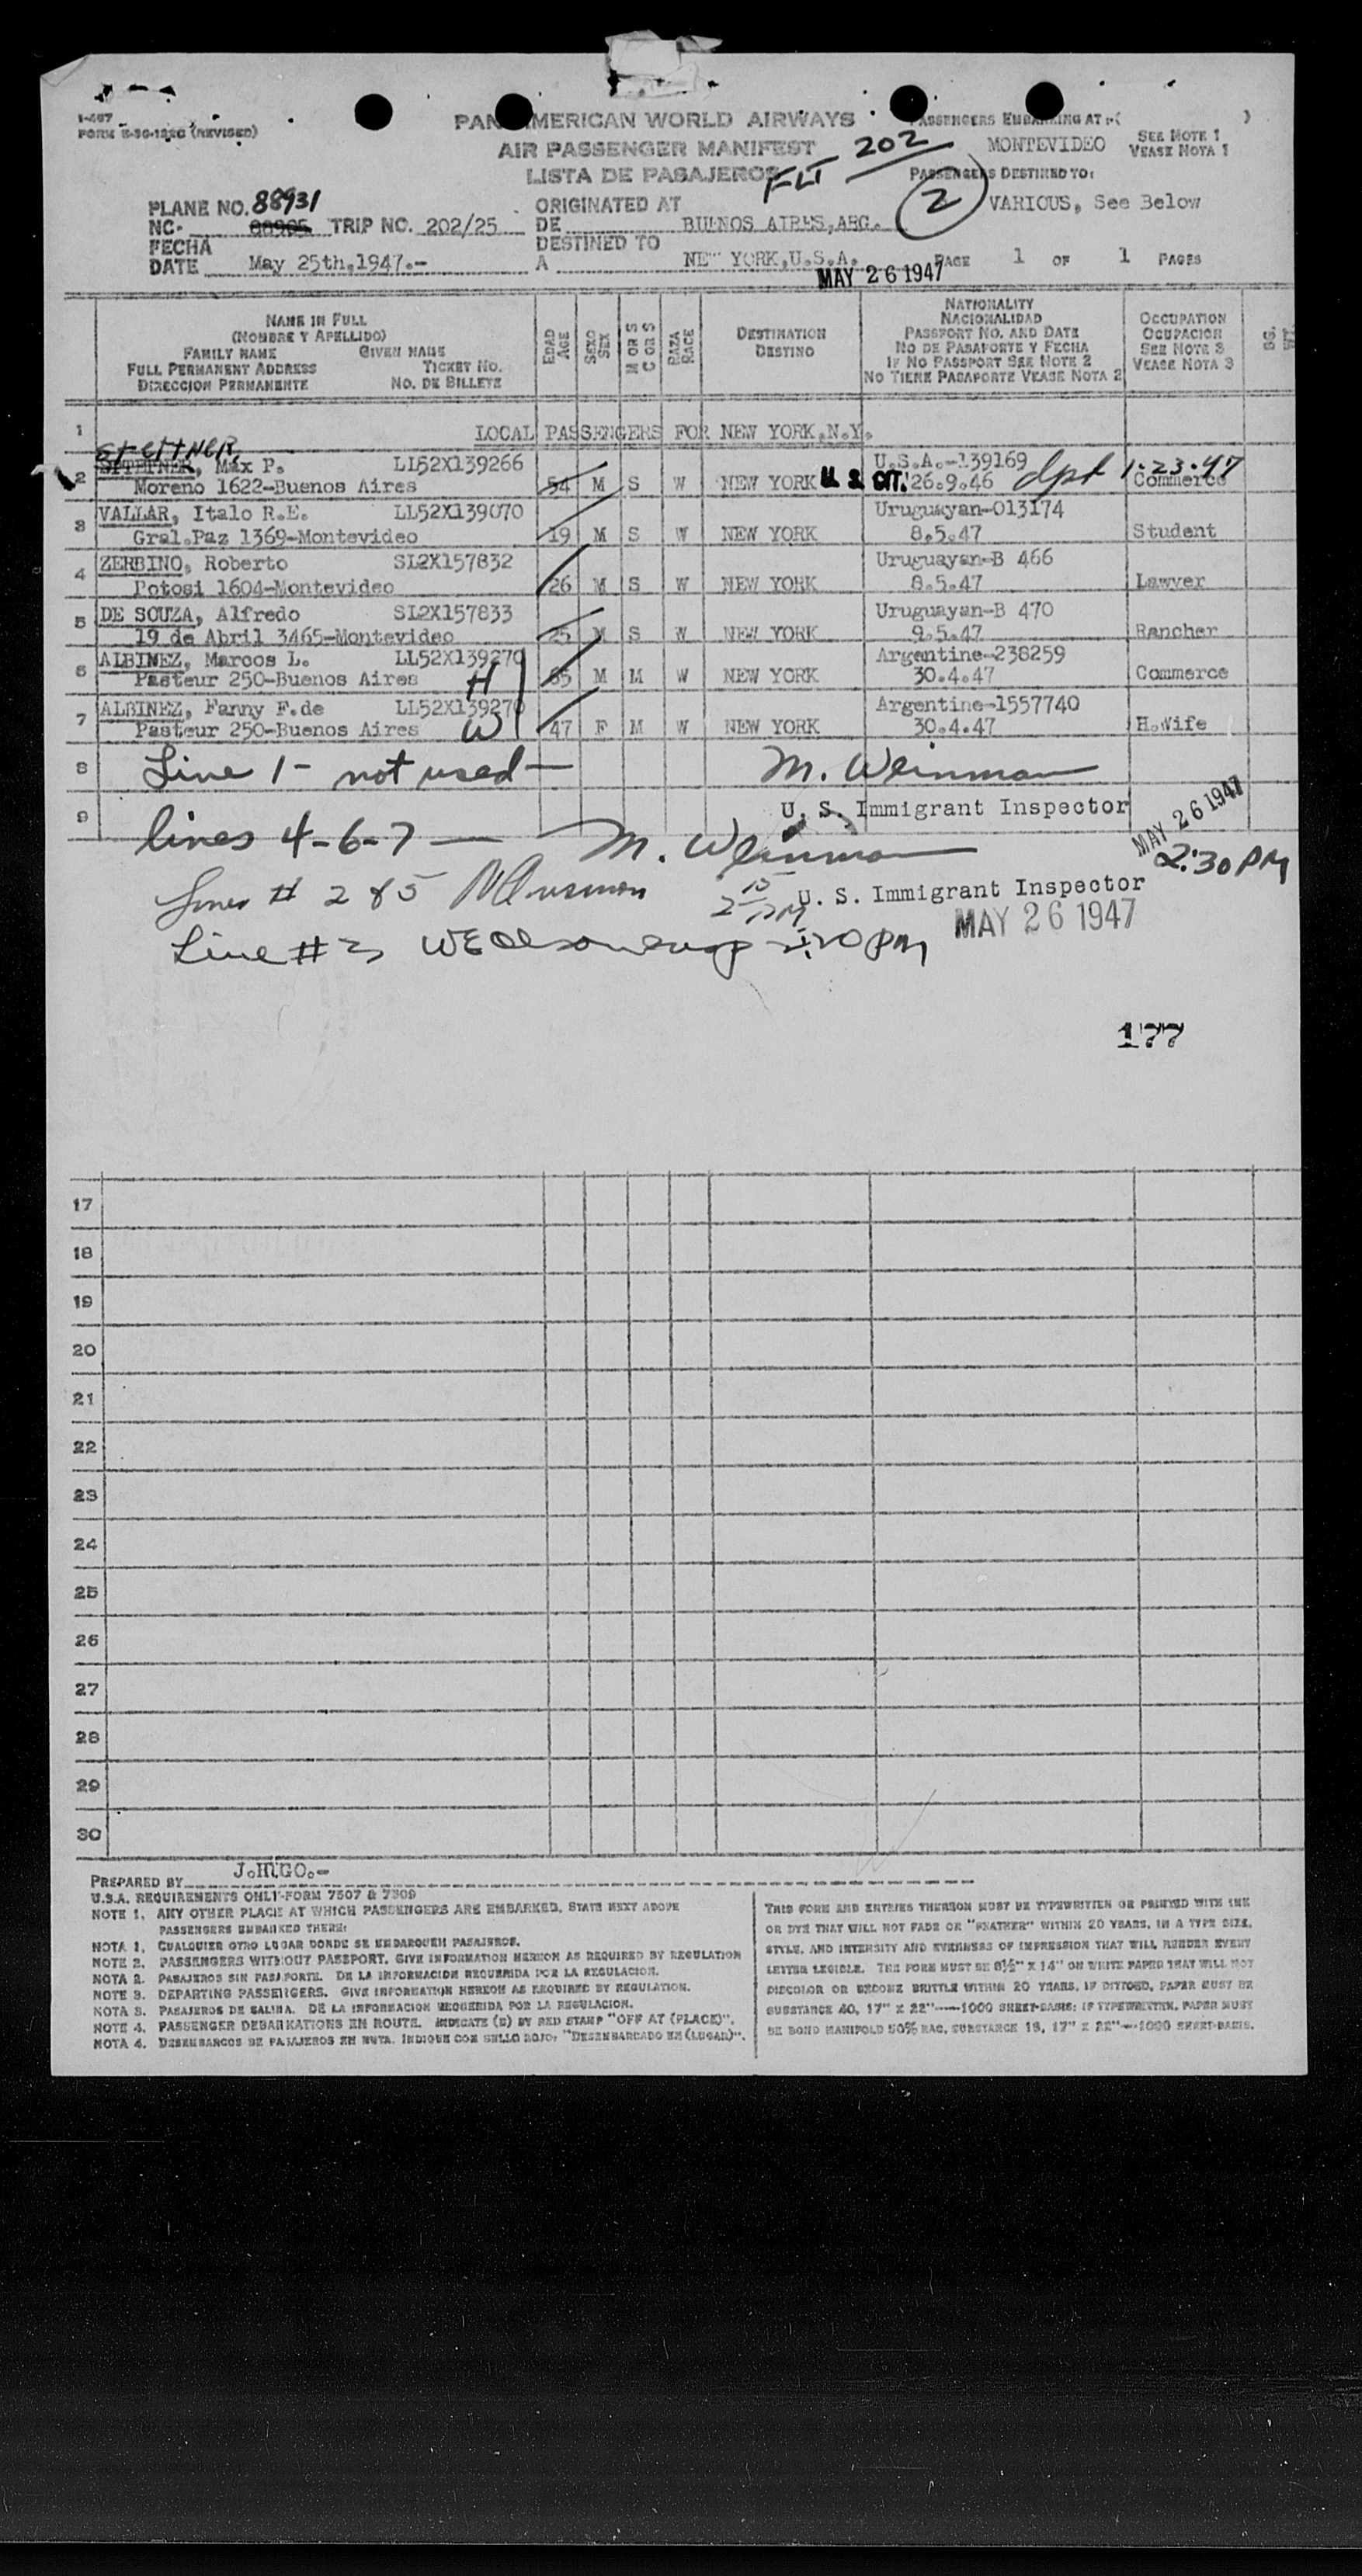 I-487
FORM
PAN AMERICAN WORLD AIRWAYS
AIR PASSENGER MANIFEST
LISTA DE PASAJEROS
FLT 202
PASSENGERS EMBARKING AT :( )
MONTEVIDEO
SEE NOTE 1
VEASE NOTA 1
PASSENGERS DESTINED TO:
VARIOUS, See Below
2
PLANE NO. 88931
NC- TRIP NO. 202/25
FECHA
DATE May 25th,1947.-
ORIGINATED AT
DE BUENOS AIRES,ARG.
DESTINED TO
A NEW YORK,U.S.A.
MAY 26 1947
PAGE 1 OF 1 PAGES
NAME IN FULL
(NOMBRE Y APELLIDO)
FAMILY NAME GIVEN NAME
FULL PERMANENT ADDRESS TICKET NO.
DIRECCION PERMANENTE NO. DE BILLETE
EDAD AGE
SEXO SEX
M OR S
C OR S
RAZA RACE
DESTINATION
DESTINO
NATIONALITY
NACIONALIDAD
PASSPORT NO. AND DATE
NO DE PASAPORTE Y FECHA
IF NO PASSPORT SEE NOTE 2
NO TIENE PASAPORTE VEASE NOTA 2
OCCUPATION
OCUPACION
SEE NOTE 3
VEASE NOTA 3
1 LOCAL PASSENGERS FOR NEW YORK,N.Y.
STETTNER,
2 Max P. LL52X139266 U.S.A.-139169 dpt 1-23-47
Moreno 1622-Buenos Aires 54 M S W NEW YORK U. S. CIT. 26.9.46 Commerce
3 VALLAR, Italo R.E. LL52X139070 Uruguayan-013174
Gral.Paz 1369-Montevideo 19 M S W NEW YORK 8.5.47 Student
4 ZERBINO, Roberto SL2X157832 Uruguayan-B 466
Potosi 1604-Montevideo 26 M S W NEW YORK 8.5.47 Lawyer
5 DE SOUZA, Alfredo SL2X157833 Uruguayan-B 470
19 de Abril 3465-Montevideo 25 M S W NEW YORK 9.5.47 Rancher
6 ALBINEZ, Marcos L. LL52X139270 Argentine-238259
Pasteur 250-Buenos Aires H M M W NEW YORK 30.4.47 Commerce
7 ALBINEZ, Fanny F.de LL52X139270 Argentine-1557740
Pasteur 250-Buenos Aires W 47 F M W NEW YORK 30.4.47 H.Wife
8 Line 1 - not used — M. Weinman
9 U. S. Immigrant Inspector
MAY 26 1947
2:30 PM
lines 4-6-7 — M. Weinman
Lines # 2 & 5
U. S. Immigrant Inspector
MAY 26 1947
Line # 3
177
17
18
19
20
21
22
23
24
25
26
27
28
29
30
PREPARED BY J.HUGO.-
U.S.A. REQUIREMENTS ONLY-FORM 7507 & 7509
NOTE 1. ANY OTHER PLACE AT WHICH PASSENGERS ARE EMBARKED, STATE NEXT ABOVE
PASSENGERS EMBARKED THERE:
NOTA 1. CUALQUIER OTRO LUGAR DONDE SE EMBARQUEN PASAJEROS.
NOTE 2. PASSENGERS WITHOUT PASSPORT, GIVE INFORMATION HEREON AS REQUIRED BY REGULATION
NOTA 2. PASAJEROS SIN PASAPORTE. DE LA INFORMACION REQUERIDA POR LA REGULACION.
NOTE 3. DEPARTING PASSENGERS. GIVE INFORMATION HEREON AS REQUIRED BY REGULATION.
NOTA 3. PASAJEROS DE SALIDA. DE LA INFORMACION REQUERIDA POR LA REGULACION.
NOTE 4. PASSENGER DEBARKATIONS EN ROUTE. INDICATE (E) BY RED STAMP "OFF AT (PLACE)".
NOTA 4. DESEMBARCOS DE PASAJEROS EN RUTA. INDIQUE CON SELLO ROJO: "DESEMBARCADO EN (LUGAR)".
THIS FORM AND ENTRIES THEREON MUST BE TYPEWRITTEN OR PRINTED WITH INK
OR DYE THAT WILL NOT FADE OR "FEATHER" WITHIN 20 YEARS, IN A TYPE SIZE,
STYLE, AND INTENSITY AND EVENNESS OF IMPRESSION THAT WILL RENDER EVERY
LETTER LEGIBLE. THE FORM MUST BE 8½" X 14" ON WHITE PAPER THAT WILL NOT
DISCOLOR OR BECOME BRITTLE WITHIN 20 YEARS. IF DITTOED, PAPER MUST BE
SUBSTANCE 40, 17" X 22"——1000 SHEET-BASIS; IF TYPEWRITTEN, PAPER MUST
BE BOND MANIFOLD 50% RAG, SUBSTANCE 16, 17" X 22"——1000 SHEET-BASIS.